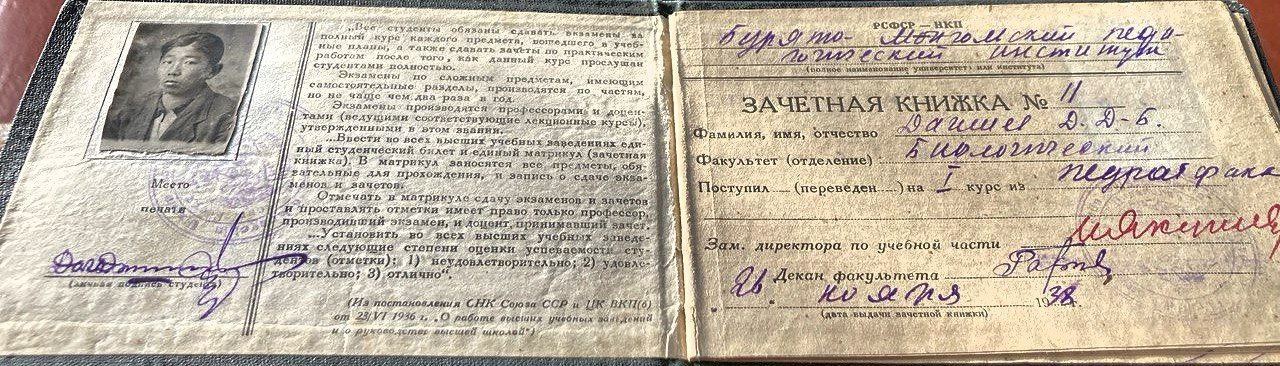 „Все студенты обязаны сдавать экзамены за
полный курс каждого предмета, вошедшего в учеб-
ные планы, а также сдавать зачеты по практическим
работам после того, как данный курс прослушан
студентами полностью.
Экзамены по сложным предметам, имеющим
самостоятельные разделы, производятся по частям,
но не чаще чем два раза в год.
Экзамены производятся профессорами и доцен-
тами (ведущими соответствующие лекционные курсы),
утвержденными в этом звании.
...Ввести во всех высших учебных заведениях еди-
ный студенческий билет и единый матрикул (зачетная
книжка). В матрикул заносятся все предметы, обя-
зательные для прохождения, и запись о сдаче экза-
менов и зачетов.
Отмечать в матрикуле сдачу экзаменов и зачетов
и проставлять отметки имеет право только профессор,
производивший экзамен, и доцент, принимавший зачет.
...Установить во всех высших учебных заведе-
ниях следующие степени оценки успеваемости сту-
дентов (отметки): 1) неудовлетворительно; 2) удовле-
творительно; 3) отлично“.
(Из постановления СНК Союза ССР и ЦК ВКП(б)
от 23/VI 1936 г. „О работе высших учебных заведений
и о руководстве высшей школой“)
Место
печати
(личная подпись студента)
РСФСР—НКП
Бурято-Монгольский педа-
гогический институт
(полное наименование университета или института)
ЗАЧЕТНАЯ КНИЖКА № 11
Фамилия, имя, отчество Д. Д-Б.
Факультет (отделение) Биологический
Поступил (переведен) на I курс из
Зам. директора по учебной части
Декан факультета
26 ноября 1938 г.
(дата выдачи зачетной книжки)